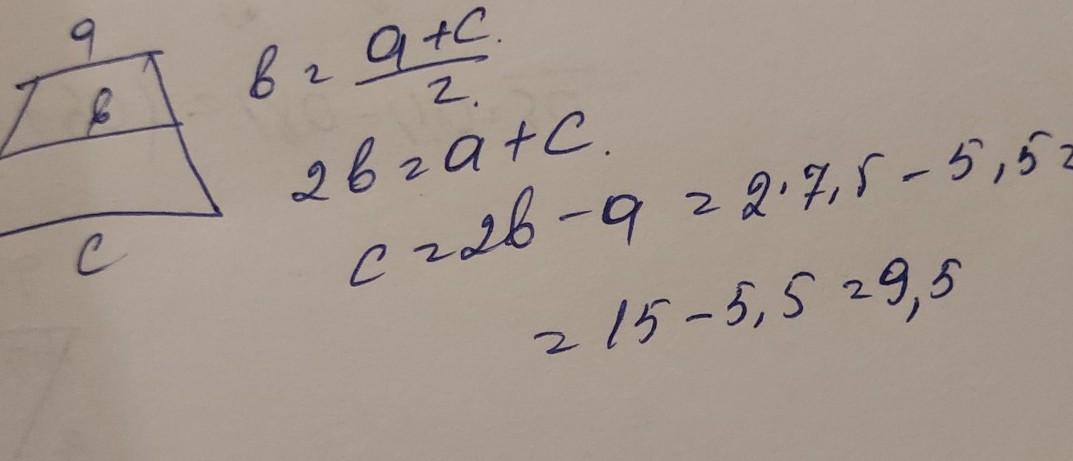 a
b
c
b = a + c. / 2.
2b = a + c.
c = 2b - a = 2·7,5 - 5,5 =
= 15 - 5,5 = 9,5